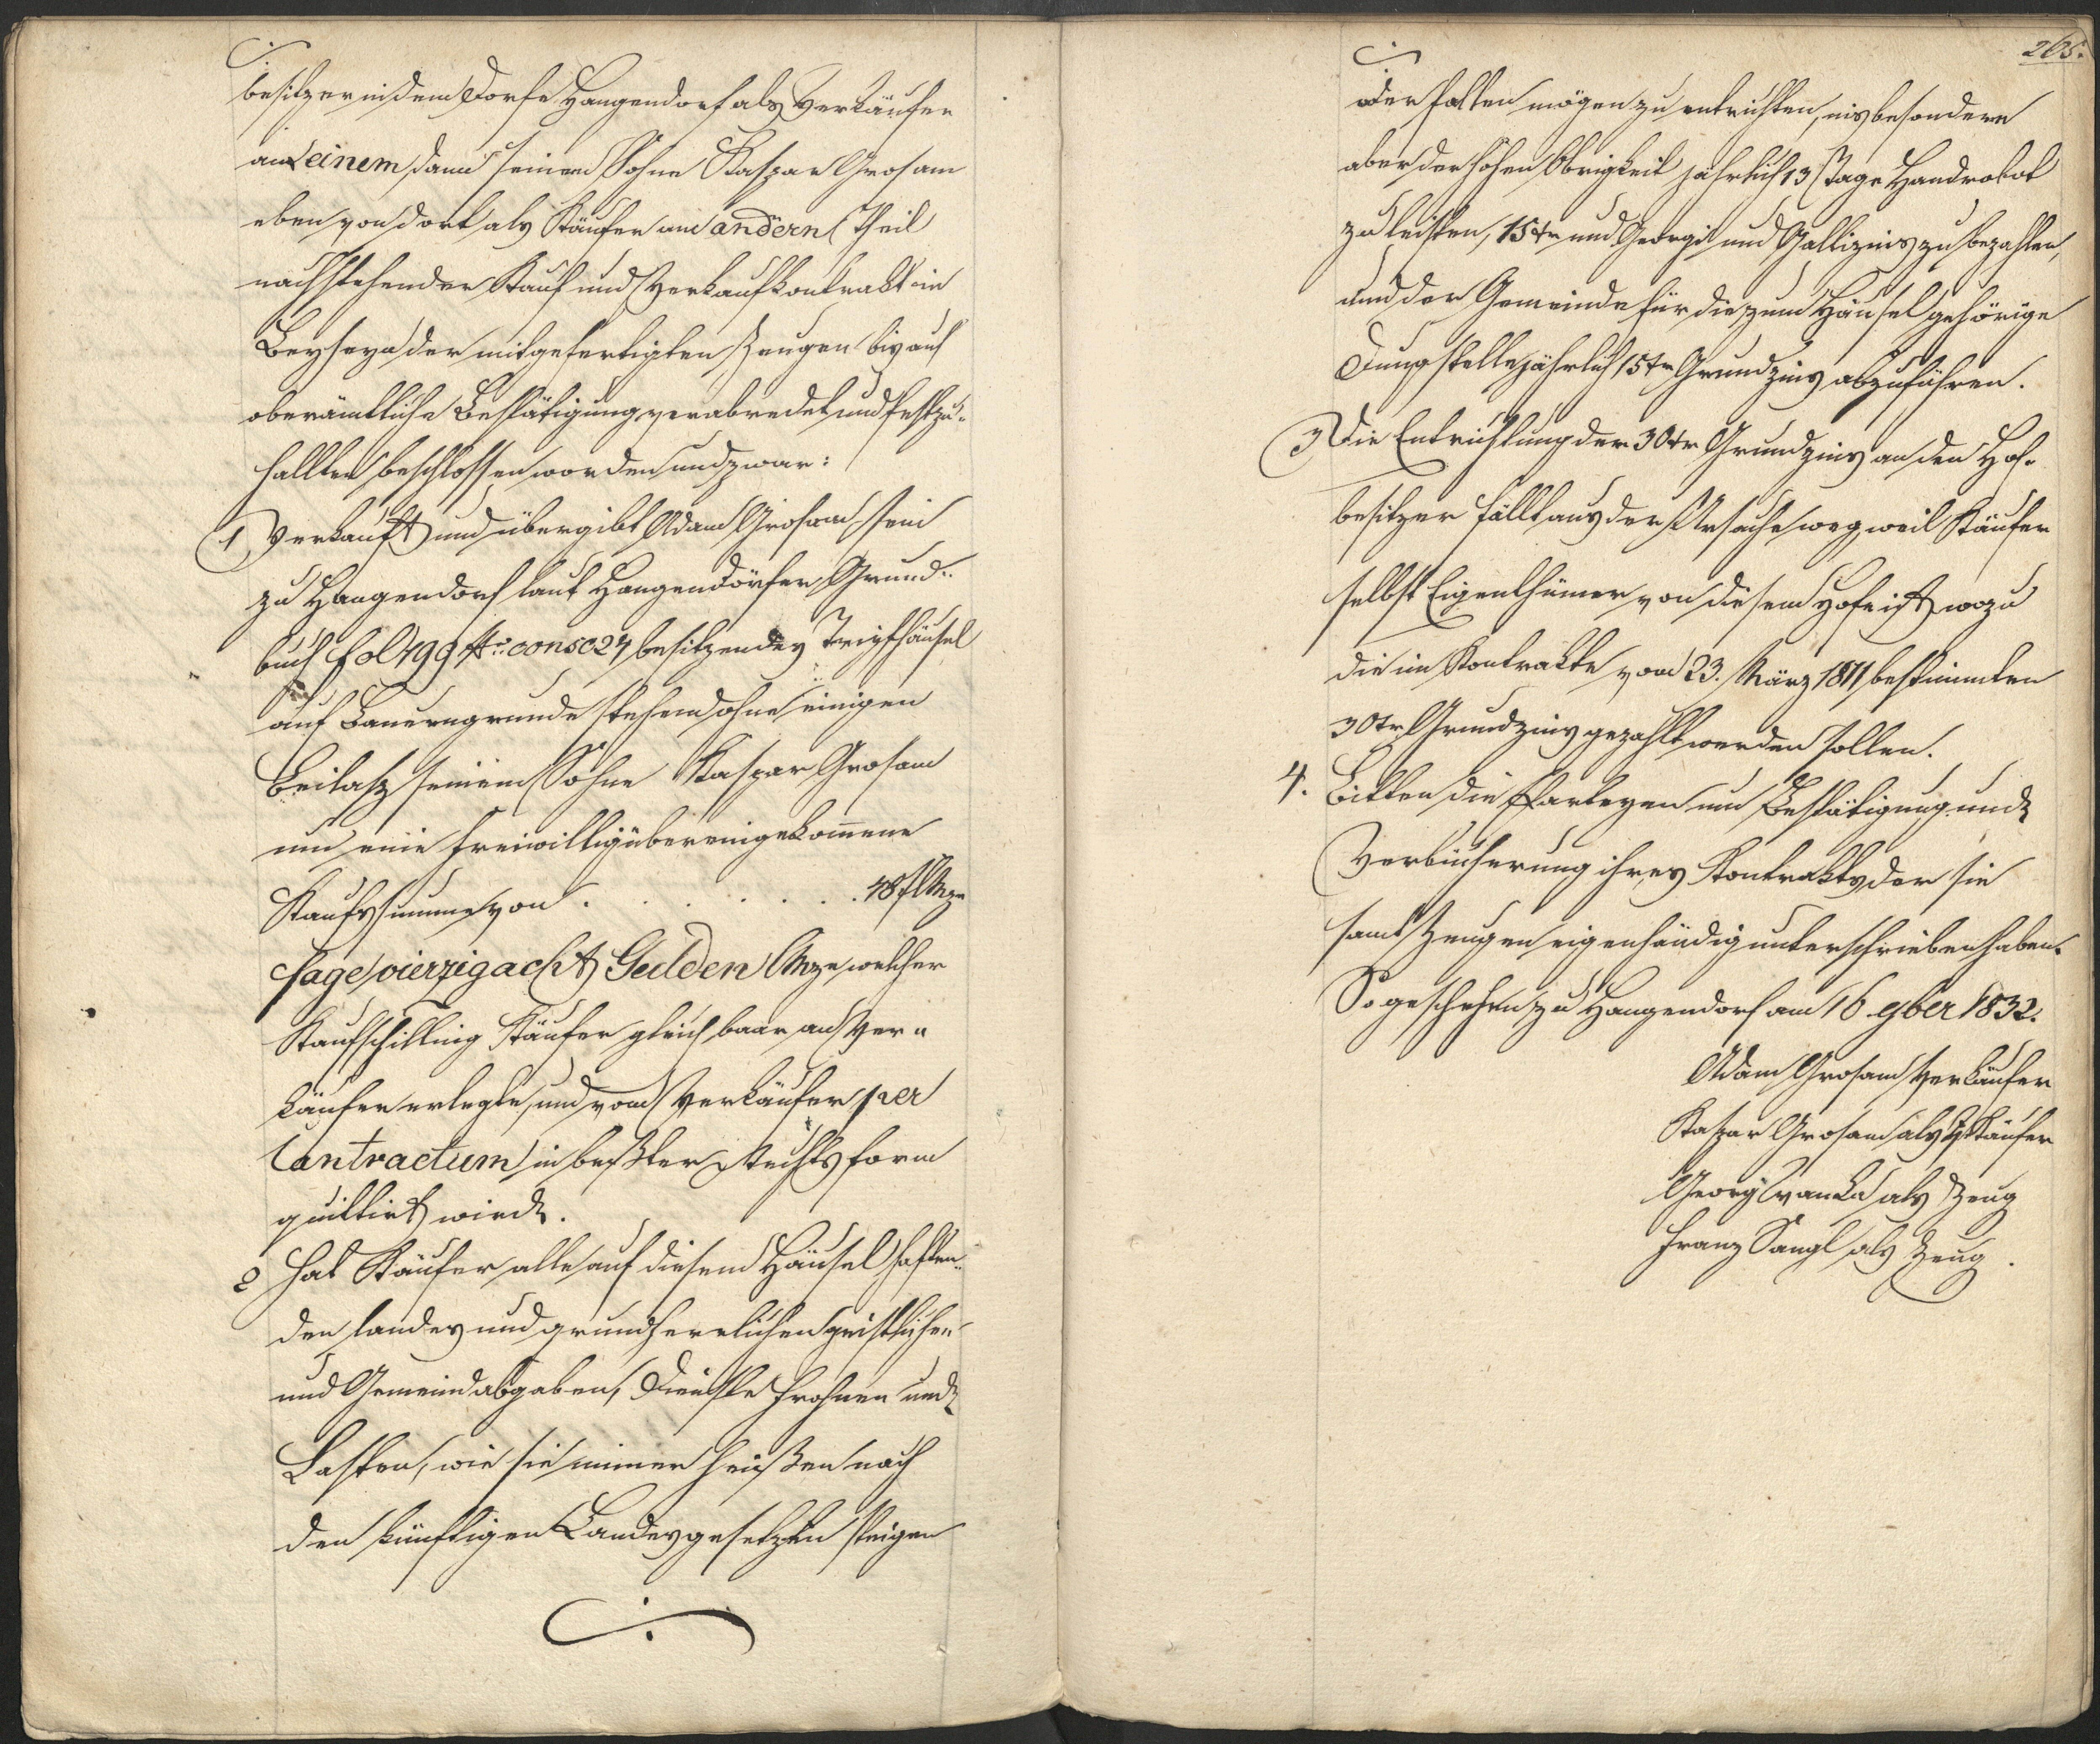 besitzer in dem Dorfe Hangendorf als Verkäufer
an einem, dann seinem Sohne Kaspar Grosam
eben von dort als Käufer am andern Theil
nachstehender Kauf und Verkaufkontrakt in
Beyseyn der mitgefertigten Zeugen bis auf
oberämtliche Bestätigung verabredet und festzu-
hallten beschlossen worden und zwar:
1, Verkauft und übergibt Adam Grosam sein
zu Hangendorf laut Hangendörfer Grund-
buch fol 499 No consc 27 besitzendes Häusel
auf Bauerngrunde stehend ohne einigen
Beilasz seinem Sohne Kaspar Grosam
um eine freiwillig übereingekomene
Kaufssumme von . . . . . . 48 fl Mze
sage vierzig acht Gulden Mze, welcher
Kaufschilling Käufer gleich baar an Ver-
käufer erlegte, und vom Verkäufer per
Contractum in beßter Rechtsform
quittirt wird.
2 Hat Käufer alle auf diesem Häusel haften-
den landes und grundherrlichen geistlichen
und Gemeindabgaben, Dienste Frohnen und
Lasten, wie sie immer heißen nach
den künftigen Landesgesetzen steigen
265.
oder fallen mögen zu entrichten, insbesondere
aber der hohen Obrigkeit jährlich 13 Tage Handrobot
zu leisten, 15 xr und Georgi und Gallizins zu bezahlen,
und der Gemeinde für die zum Häusel gehörige
Dungstelle jährlich 15 xr Grundzins abzuführen.
3 Die Entrichtung der 30 xr Grundzins an den Hof-
besitzer fällt aus der Ursache weg, weil Käufer
selbst Eigenthümer von diesem Hofe ist, wozu
die im Kontrakte vom 23. März 1811 bestimmten
30 xr Grundzins gezahlt werden sollen.
4. Bitten die Partheyen um Bestätigung und
Verbücherung ihres Kontrakts, der sie
samt Zeugen eigenhändig unterschrieben haben.
So geschehen zu Hangendorf am 16 9ber 1832.
Adam Grosam Verkäufer
Kaspar Grosam als Käufer
Georg Wanka als Zeug
Franz Sangl als Zeug.